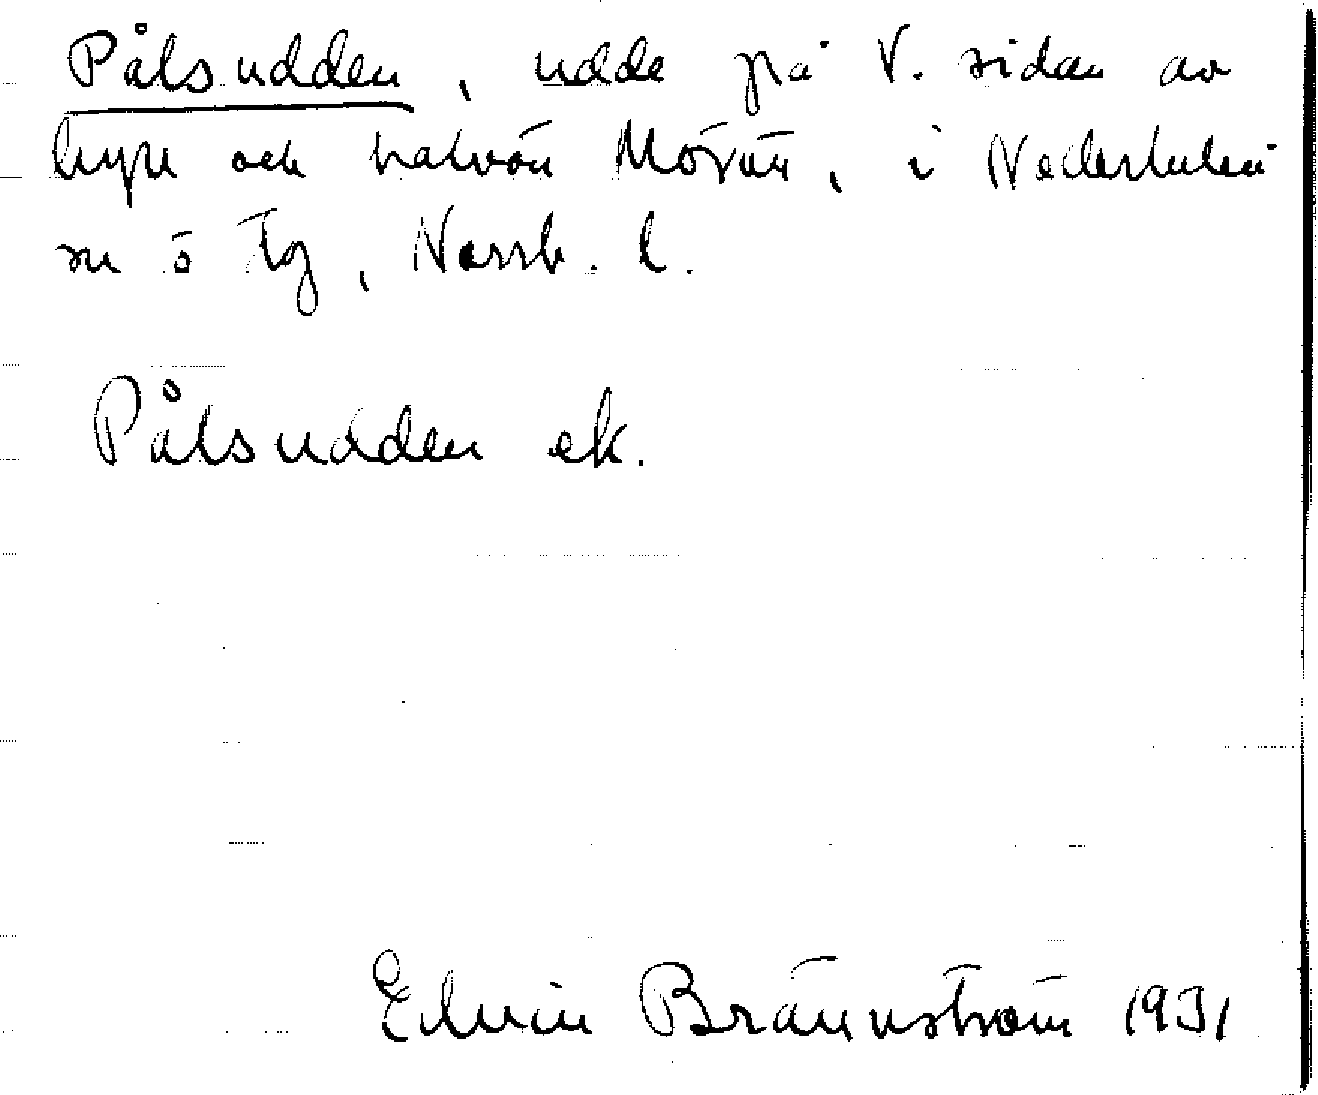 Pålsudden, udde på V. sidan av
byn och halvön Mörön, i Nederluleå
sn o tg, Norrb. l.
Pålsudden ek.
Edvin Brännström 1931